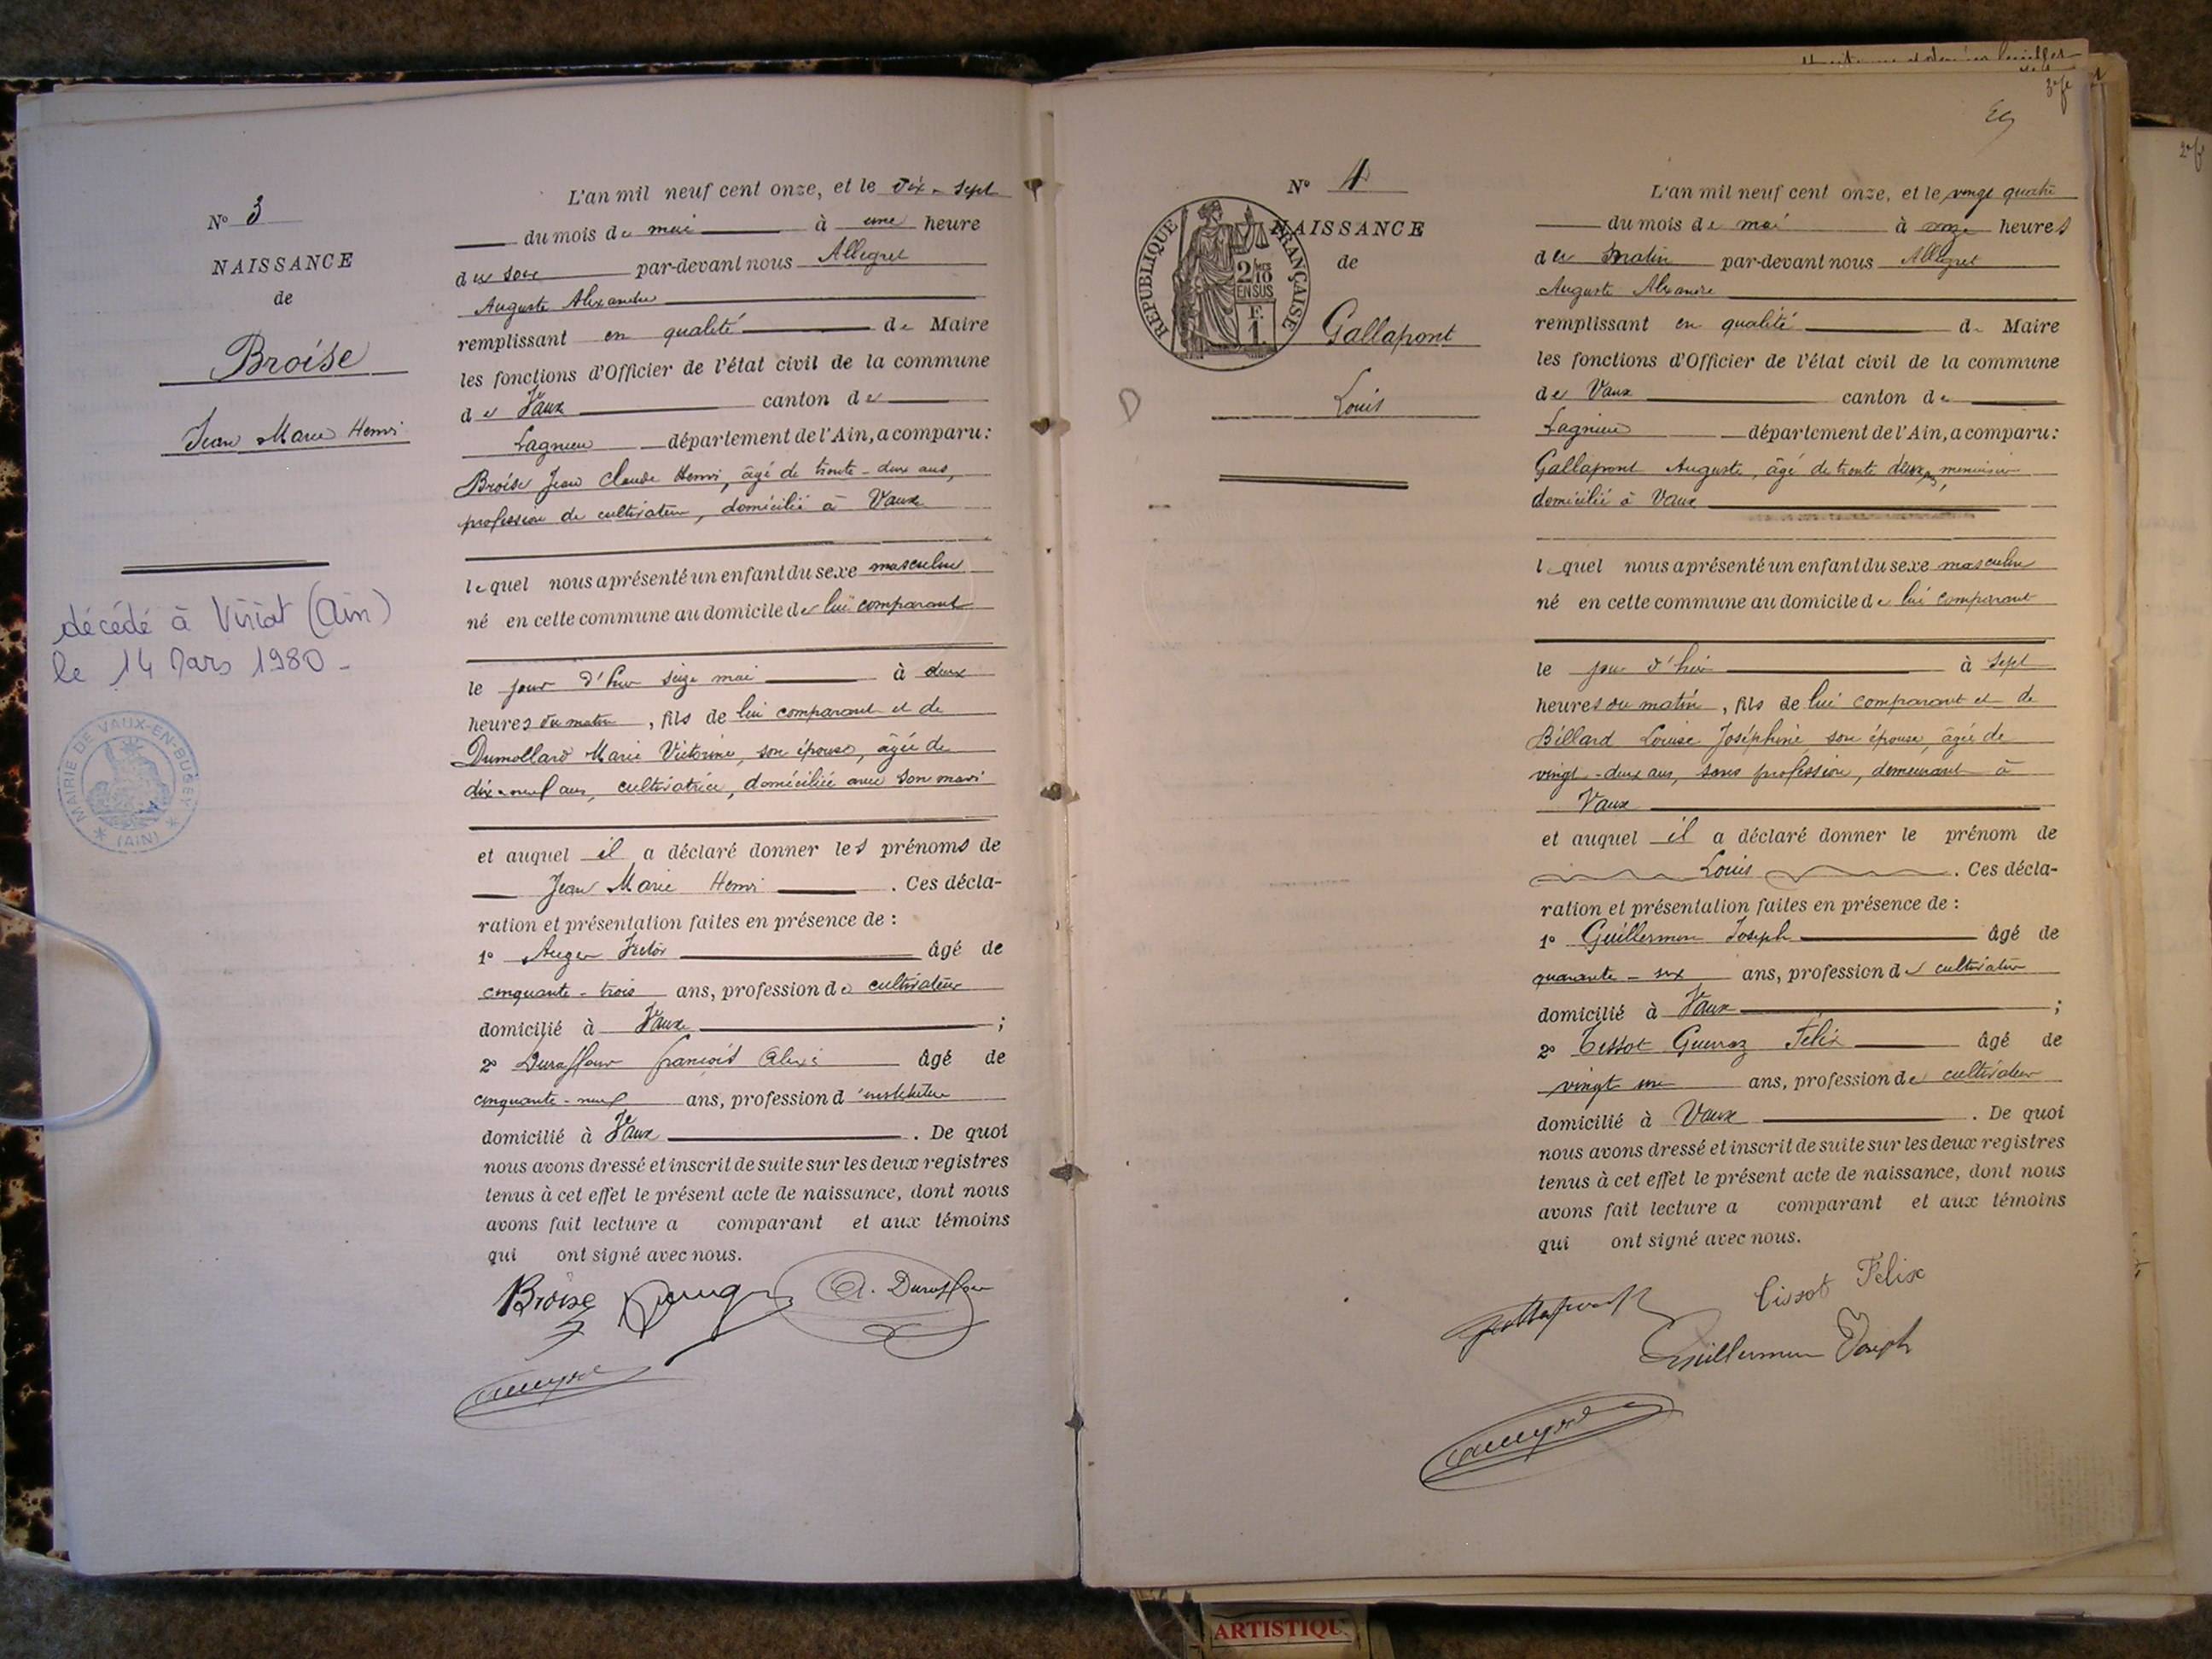 N° 3
NAISSANCE
de
Broise
Jean Marie Henri
décédé à Viriat (Ain)
le 14 Mars 1980 -
MAIRIE DE VAUX-EN-BUGEY
(AIN)
L'an mil neuf cent onze, et le dix-sept
du mois de mai à une heure
du soir par-devant nous Allegret
Auguste Alexandre
remplissant en qualité de Maire
les fonctions d'Officier de l'état civil de la commune
de Vaux canton de
Lagnieu département de l'Ain, a comparu :
Broise Jean Claude Henri, âgé de trente-deux ans,
profession de cultivateur, domicilié à Vaux
lequel nous a présenté un enfant du sexe masculin
né en cette commune au domicile de lui comparant
le jour d'hier seize mai à deux
heures du matin, fils de lui comparant et de
Dumollard Marie Victorine, son épouse, âgée de
dix-neuf ans, cultivatrice, domiciliée avec son mari
et auquel il a déclaré donner les prénoms de
Jean Marie Henri . Ces décla-
ration et présentation faites en présence de :
1° Auger Victor âgé de
cinquante-trois ans, profession de cultivateur
domicilié à Vaux ;
2° Duraffour françois Alexis âgé de
cinquante-neuf ans, profession d'instituteur
domicilié à Vaux . De quoi
nous avons dressé et inscrit de suite sur les deux registres
tenus à cet effet le présent acte de naissance, dont nous
avons fait lecture a comparant et aux témoins
qui ont signé avec nous.
Broise A. Duraffour
3e f
2e f
N° 4
NAISSANCE
de
REPUBLIQUE FRANÇAISE
2/10
EN SUS
F.
1
Gallapont
Louis
D
L'an mil neuf cent onze, et le vingt quatre
du mois de mai à onze heures
du matin par-devant nous Allegret
Auguste Alexandre
remplissant en qualité de Maire
les fonctions d'Officier de l'état civil de la commune
de Vaux canton de
Lagnieu département de l'Ain, a comparu :
Gallapont Auguste, âgé de trente deux ans, menuisier
domicilié à Vaux
lequel nous a présenté un enfant du sexe masculin
né en cette commune au domicile de lui comparant
le jour d'hier à sept
heures du matin, fils de lui comparant et de
Billard Louise Joséphine son épouse, âgée de
vingt-deux ans, sans profession, demeurant à
Vaux
et auquel il a déclaré donner le prénom de
Louis . Ces décla-
ration et présentation faites en présence de :
1° Guillermin Joseph âgé de
quarante-six ans, profession de cultivateur
domicilié à Vaux ;
2° Tissot Guerraz Félix âgé de
vingt ans, profession de cultivateur
domicilié à Vaux . De quoi
nous avons dressé et inscrit de suite sur les deux registres
tenus à cet effet le présent acte de naissance, dont nous
avons fait lecture a comparant et aux témoins
qui ont signé avec nous.
Gallapont Tissot Felix
Guillermin Joseph
ARTISTIQU